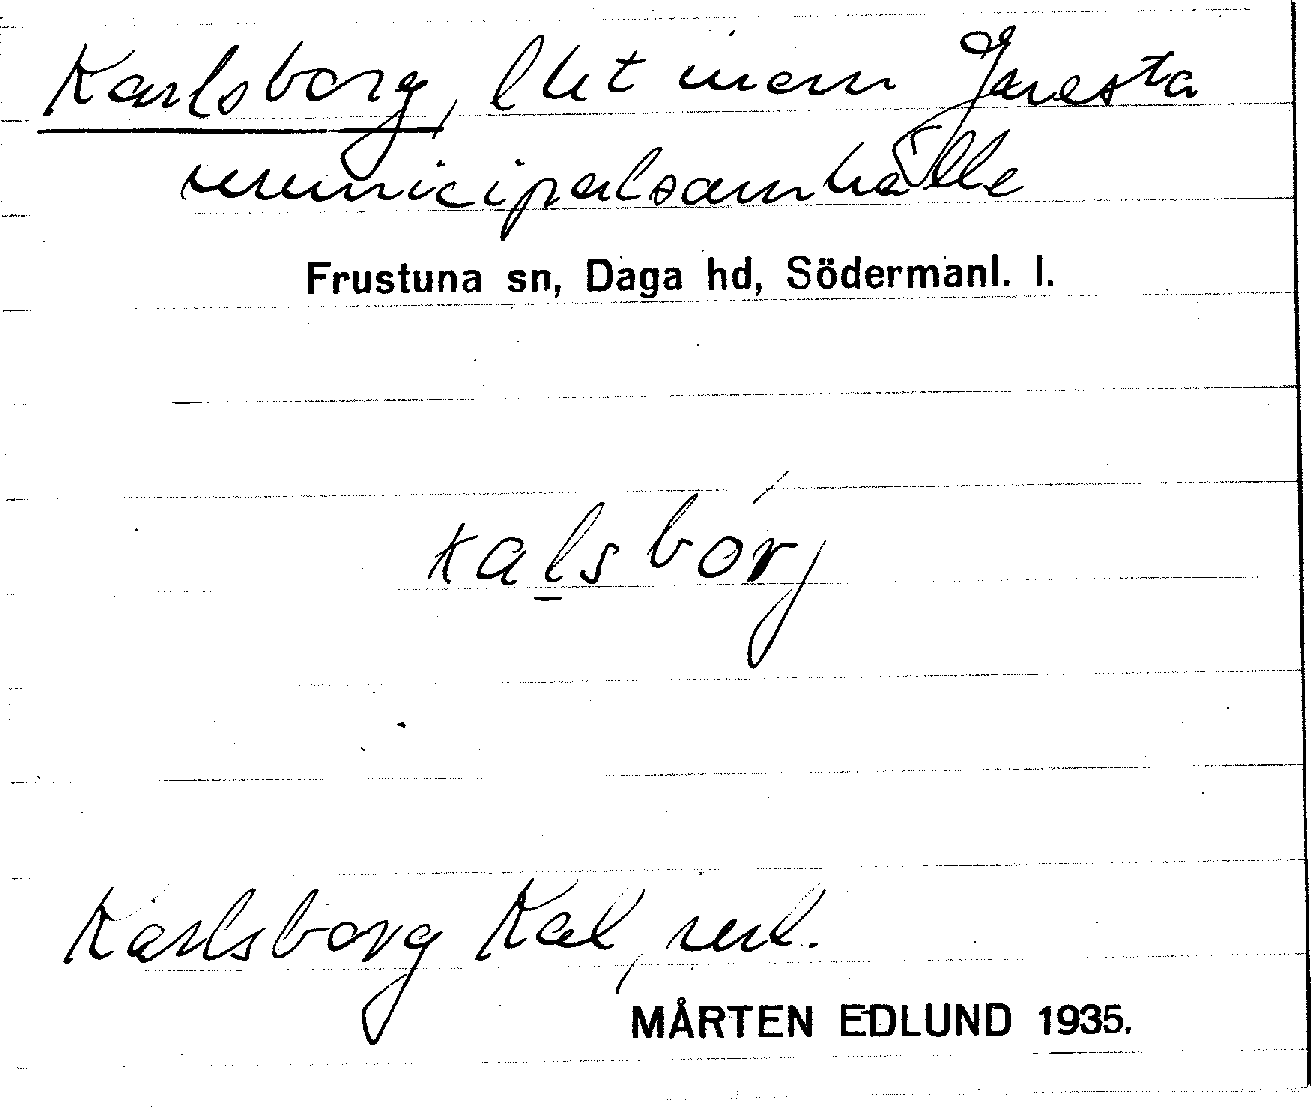 Karlsborg, lht inom Gnesta
municipalsamhälle
Frustuna sn, Daga hd, Södermanl. l.
kalsbórj
Karlsborg Kal,
MÅRTEN EDLUND 1935.